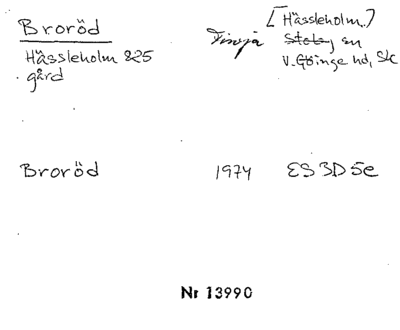 Broröd
Hässleholm 825
gård
Finja
[Hässleholm.)
Stoby sn
V. Göinge hd, Sk
Broröd 1974 ES 3D5e
Nr 13990